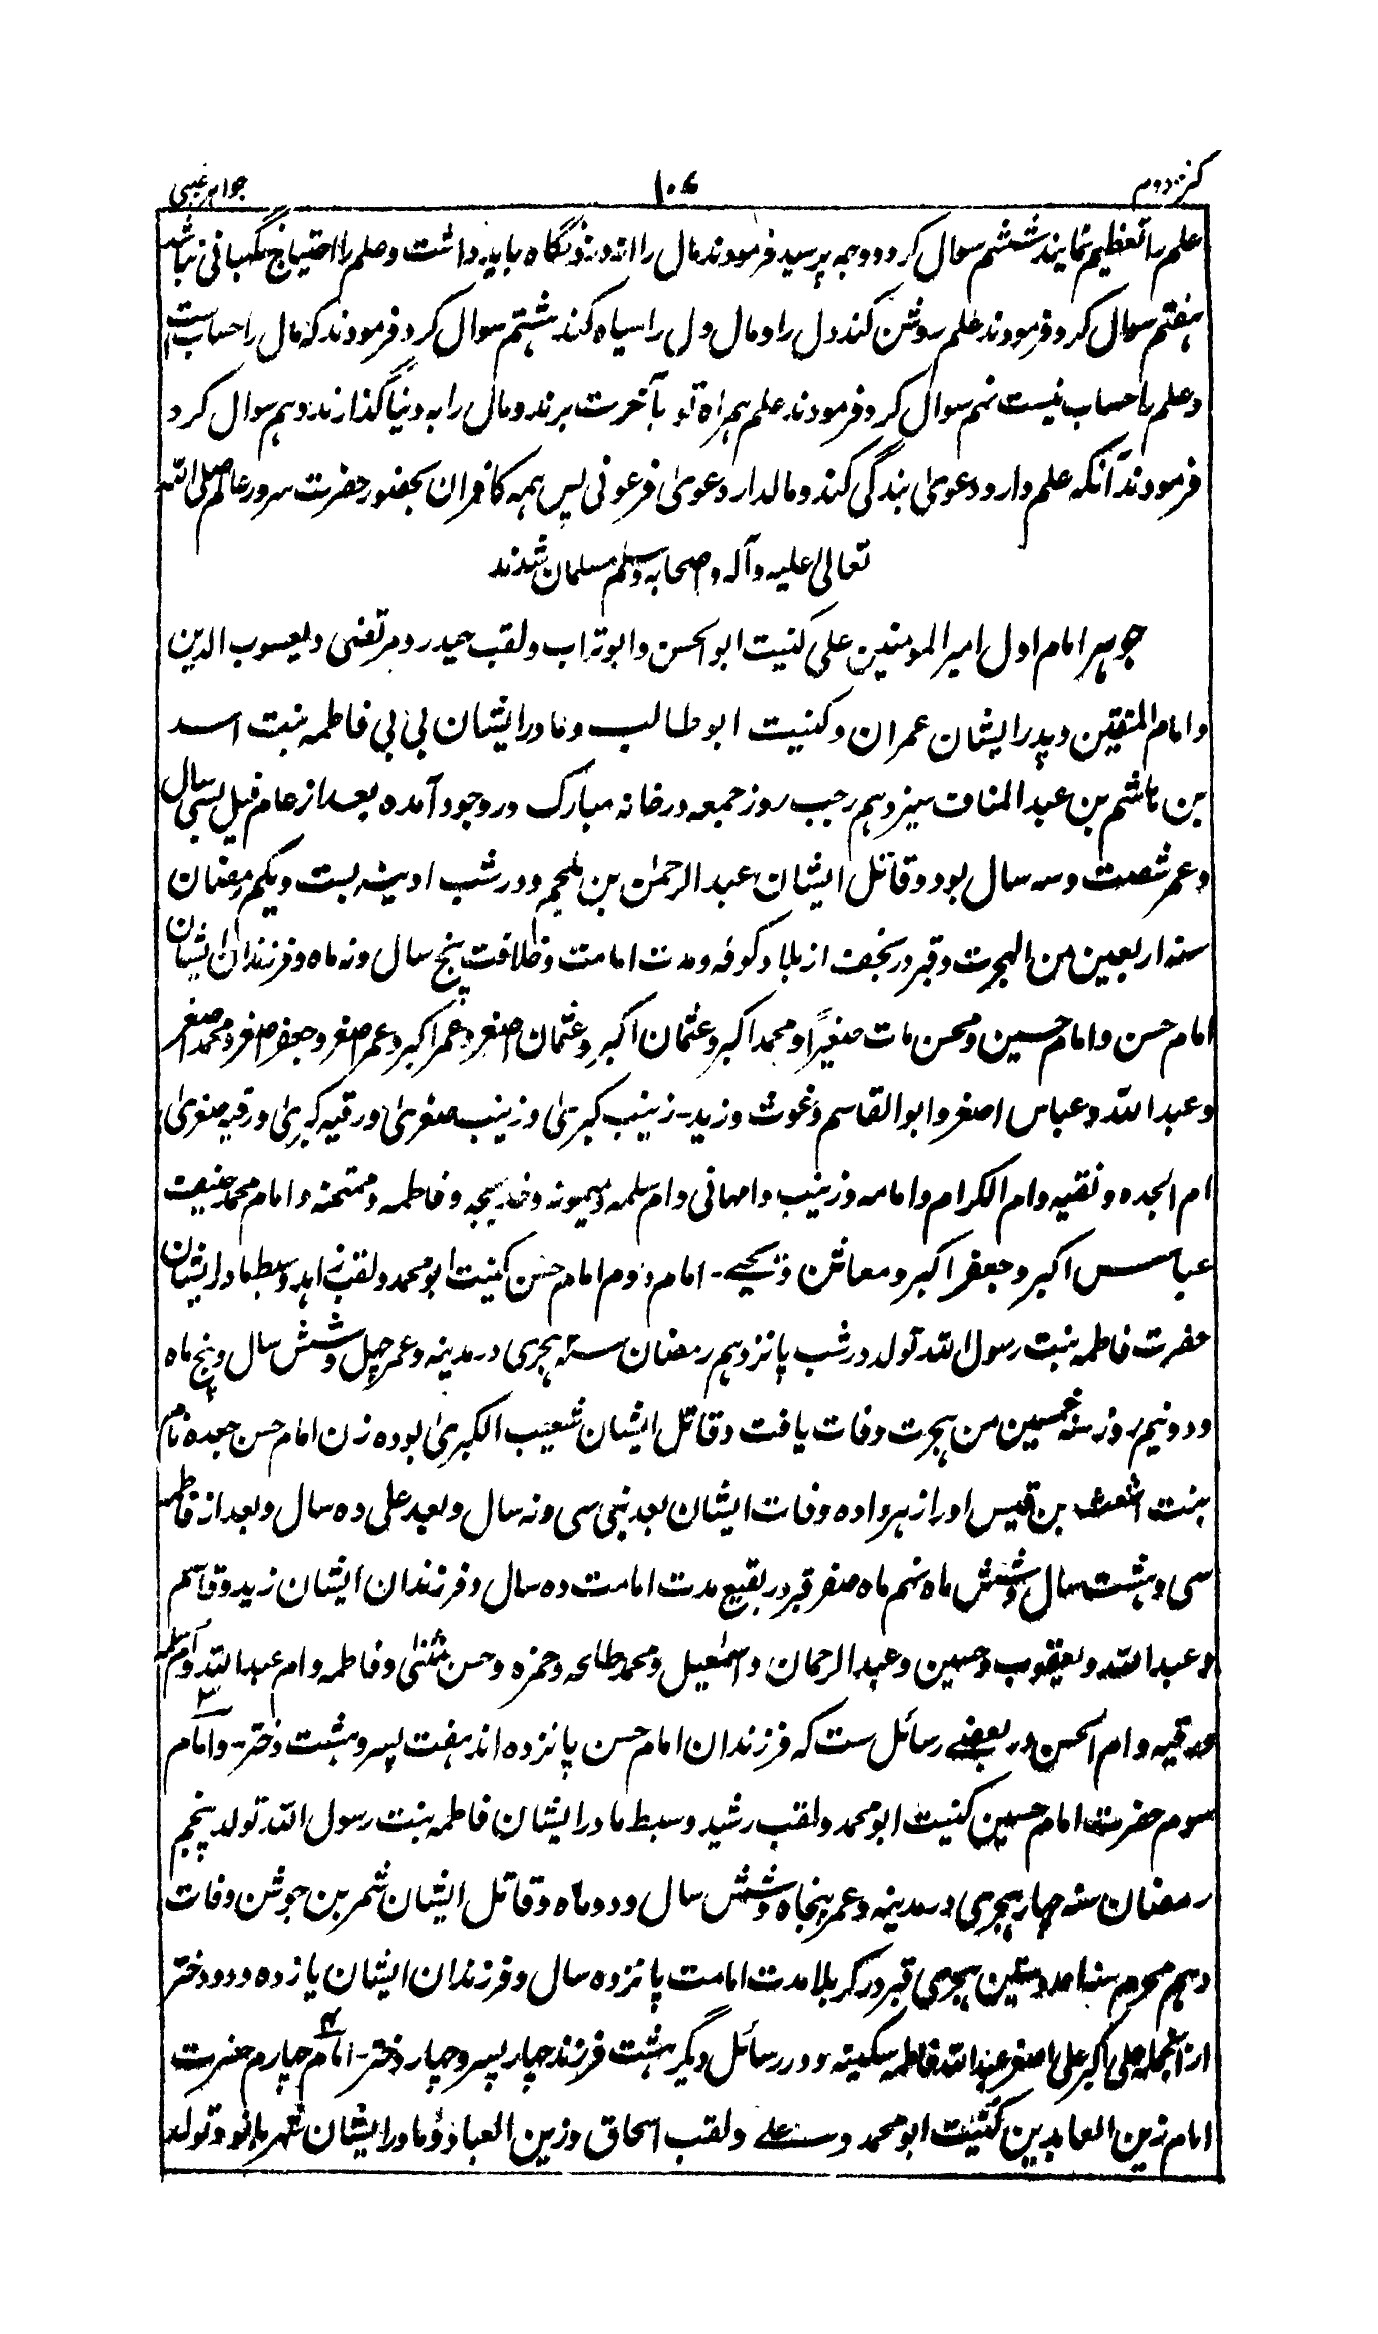 کنز دوم ۱۰۶ جواهر غیبی
علم را تعظیم نمایند ششم سوال کرد و وجه پرسید فرمودند مال را از دزد نگاه باید داشت و علم را احتیاج نگهبانی نباشد
هفتم سوال کرد فرمودند علم روشن کند دل را و مال دل را سیاه کند هشتم سوال کرد فرمودند که مال را حساب است
و علم را حساب نیست نهم سوال کرد فرمودند علم همراه تو بآخرت برند و مال را به دنیا گذارند دهم سوال کرد
فرمودند آنکه علم دارد دعوی بندگی کند و مالدار دعوی فرعونی پس همه کافران بحضور حضرت سرور عالم صلی الله
تعالی علیه و آله و اصحابه وسلم مسلمان شدند
جوهر امام اول امیر المومنین علی کنیت ابو الحسن و ابوتراب و لقب حیدر و مرتضی و یعسوب الدین
و امام المتقین و پدر ایشان عمران و کنیت ابو طالب و مادر ایشان بی بی فاطمه بنت اسد
بن هاشم بن عبد المناف سیزدهم رجب روز جمعه در خانه مبارک در وجود آمده بعد از عام فیل بسی سال
و عمر شصت و سه سال بود و قاتل ایشان عبد الرحمن بن ملجم و در شب ادینه بست و یکم رمضان
سنه اربعین من الهجرت و قبر در نجف از بلاد کوفه و مدت امامت و خلافت پنج سال و نه ماه و فرزندان ایشان
امام حسن و امام حسین و محسن مات صغیراً و محمد اکبر و عثمان اکبر و عثمان اصغر و عمر اکبر و عمر اصغر و جعفر اصغر و محمد اصغر
و عبد الله و عباس اصغر و ابو القاسم و غوث و زید - زینب کبریٰ و زینب صغریٰ و رقیه کبریٰ و رقیه صغریٰ
ام الجده و نقیه و ام الکرام و امامه و زینب و امهانی و ام سلمه و میمونه و خدیجه و فاطمه و ممتحنه و امام محمد حنیفت
عباس اکبر و جعفر اکبر و معاش و یحیے - امام دوم امام حسن کنیت ابو محمد و لقب زاهد و سبط مادر ایشان
حضرت فاطمه بنت رسول الله تولد در شب پانزدهم رمضان سنه ۳ هجری در مدینه و عمر چهل و شش سال و پنج ماه
و دو نیم روز سنه خمسین من هجرت وفات یافت و قاتل ایشان شعیب الکبریٰ بوده زن امام حسن جعده نام
بنت اشعث بن قیس او را زهر داده وفات ایشان بعد نبی سی و نه سال و بعد علی ده سال و بعد از فاطمه
سی و هشت سال و شش ماه نهم ماه صفر قبر در بقیع مدت امامت ده سال و فرزندان ایشان زید و قاسم
و عبد الله و یعقوب و حسین و عبد الرحمان و اسمٰعیل و محمد طلحه و حمزه و حسن مثنی و فاطمه و ام عبد الله و ام سلمه
و رقیه و ام الحسن در بعضے رسائل ست که فرزندان امام حسن پانزده اند هفت پسر و هشت دختر - و امام
سوم حضرت امام حسین کنیت ابو محمد و لقب رشید و سبط مادر ایشان فاطمه بنت رسول الله تولد پنجم
رمضان سنه چهار هجری در مدینه و عمر پنجاه و شش سال و دو ماه و قاتل ایشان شمر بن جوشن وفات
دهم محرم سنه احد و ستین هجری قبر در کربلا مدت امامت پانزده سال و فرزندان ایشان یازده و دو دختر
از انجمله علی اکبر علی اصغر عبد الله فاطمه سکینه و در رسائل دیگر هشت فرزند چهار پسر و چهار دختر - امام چهارم حضرت
امام زین العابدین کنیت ابو محمد و علے و لقب اسحاق و زین العباد و مادر ایشان شهر بانو و تولد